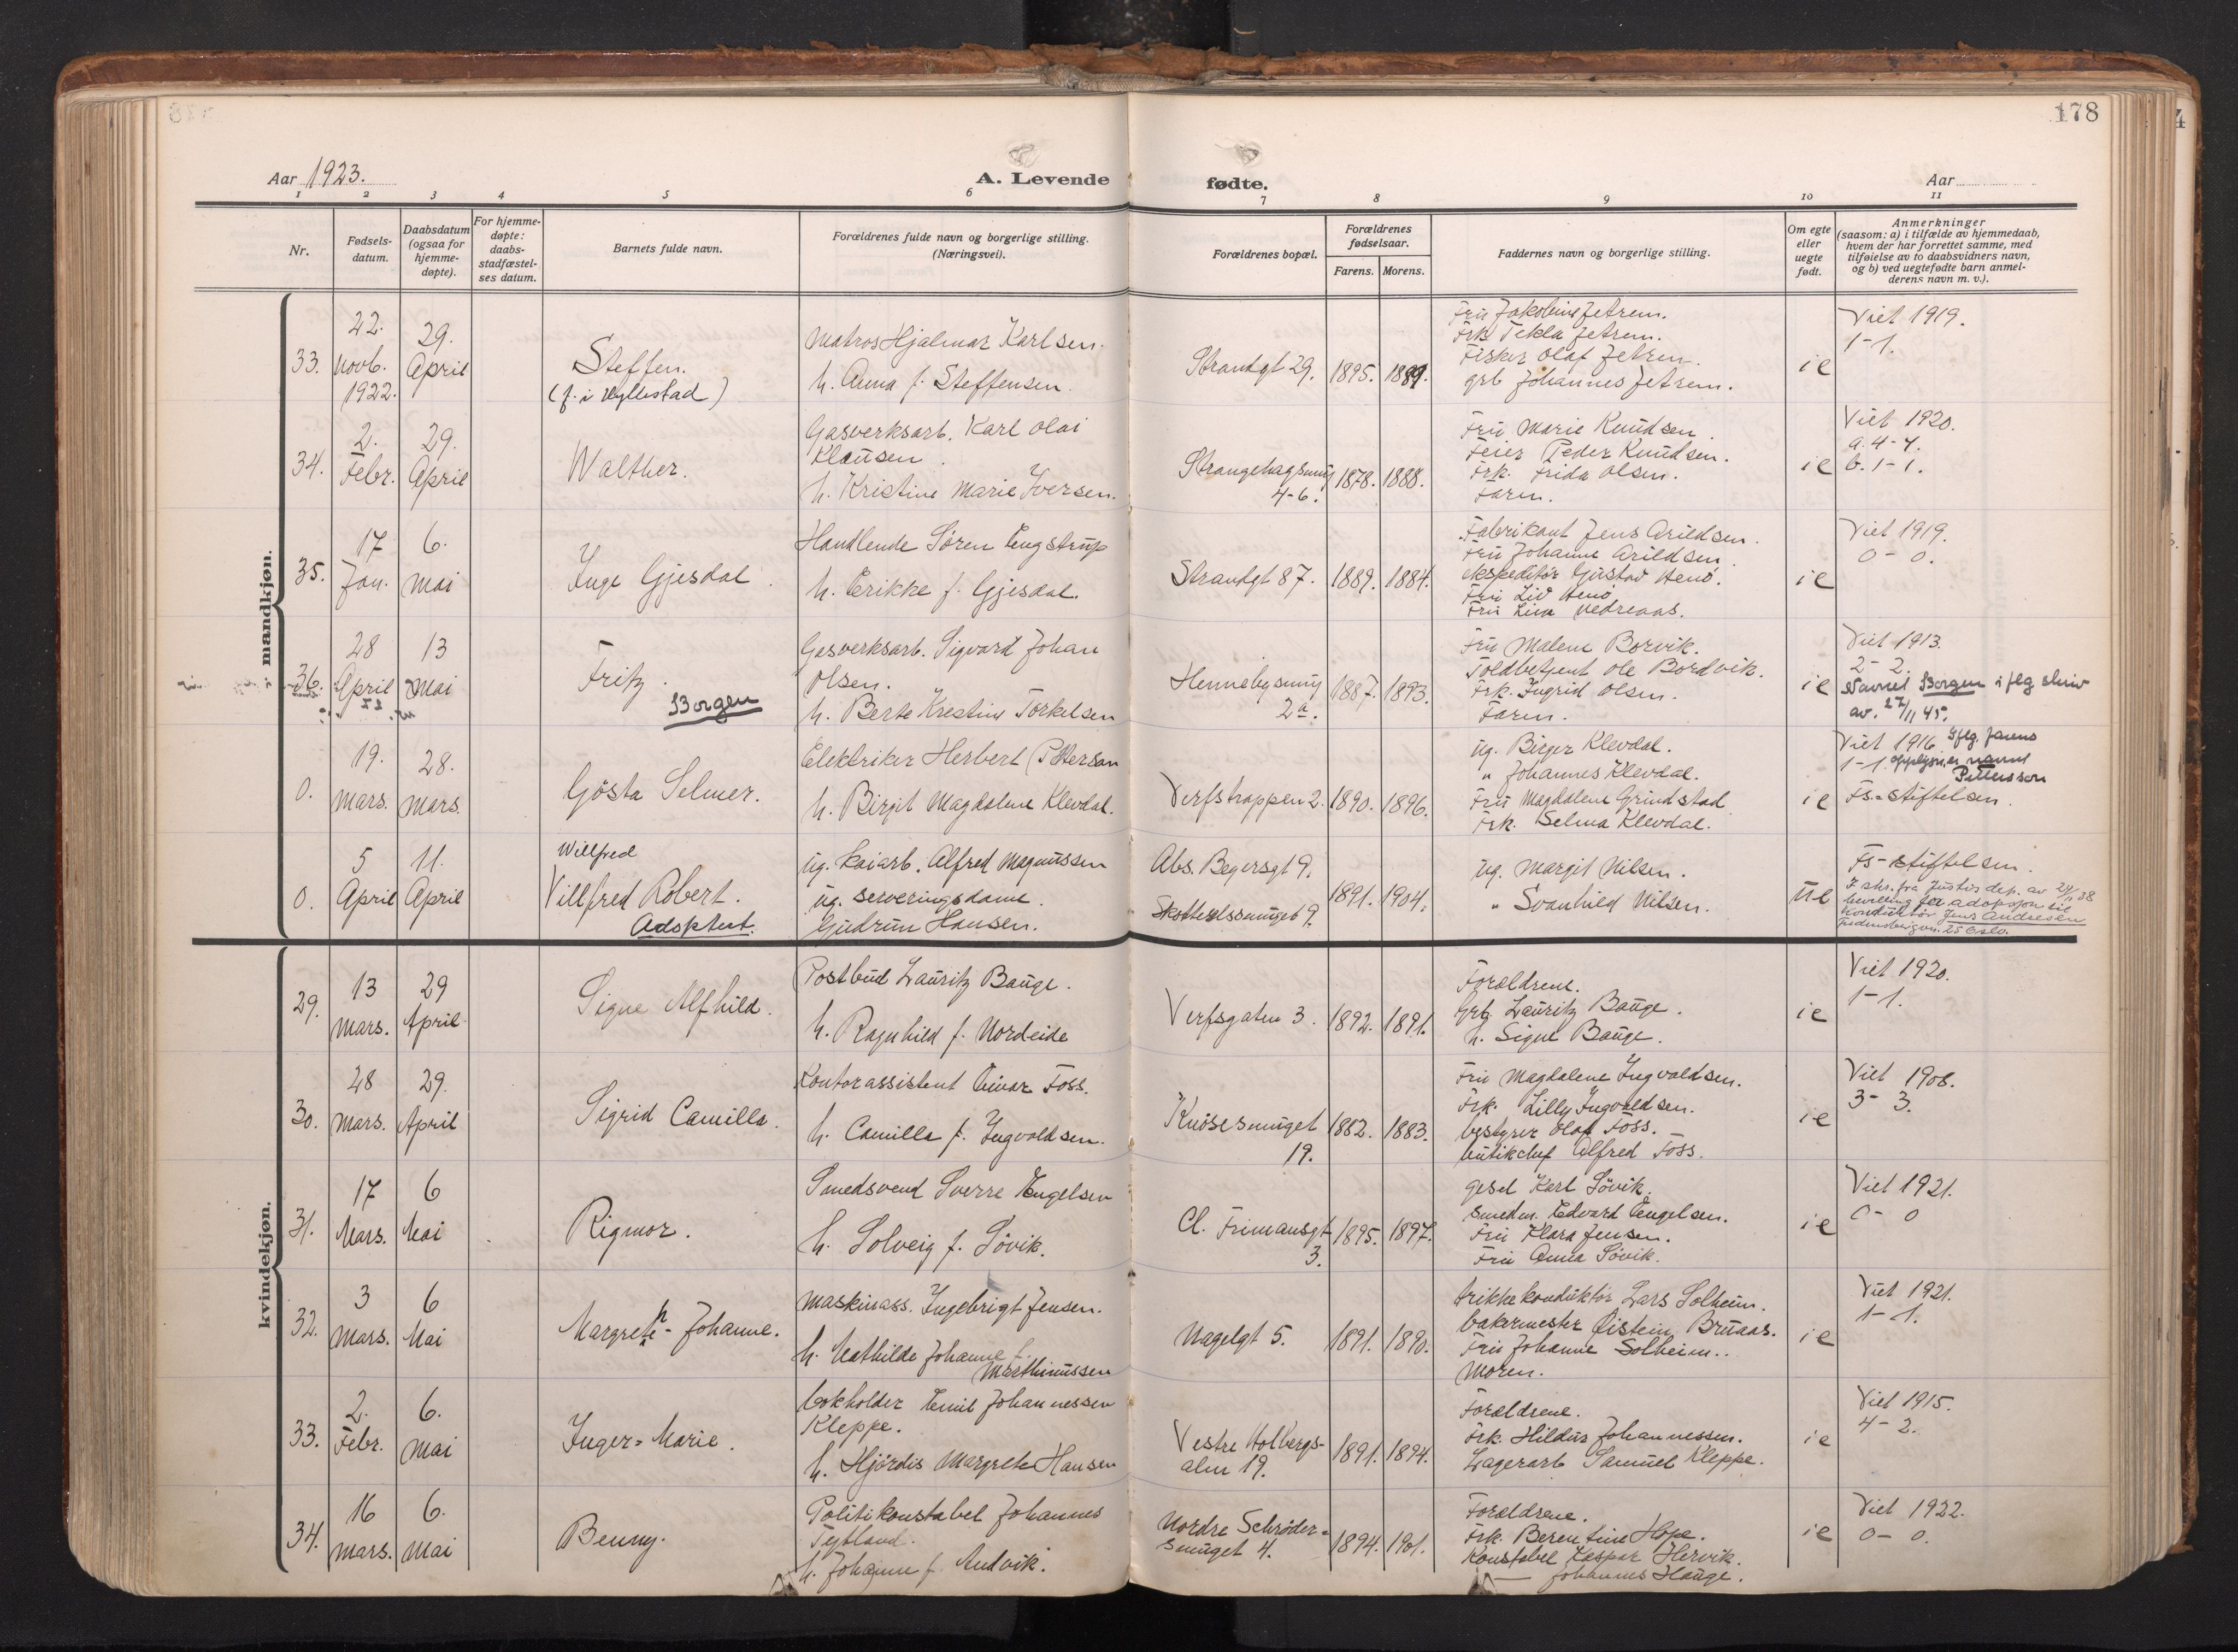 178
Aar 1923.
A. Levende fødte.
Aar
1 2 3 4 5 6 7 8 9 10 11
Nr.
Fødsels-
datum.
Daabsdatum
(ogsaa for
hjemme-
døpte).
For hjemme-
døpte:
daabs-
stadfæstel-
ses datum.
Barnets fulde navn.
Forældrenes fulde navn og borgerlige stilling.
(Næringsvei).
Forældrenes bopæl.
Forældrenes
fødselsaar.
Farens. Morens.
Faddernes navn og borgerlige stilling.
Om egte
eller
uegte
født.
Anmerkninger
(saasom: a) i tilfælde av hjemmedaab,
hvem der har forrettet samme, med
tilføielse av to daabsvidners navn,
og b) ved uegtefødte barn anmel-
derens navn m. v.).
mandkjøn.
33.
22.
Novb.
1922.
29.
April
Steffen.
(f. i Hyllestad)
Matros Hjalmar Karlsen.
h. Anna f. Steffensen.
Strandgt 29.
1895. 1889.
Fru Jakobine Jetrem.
Frk. Tekla Jetrem.
Fisker Olaf Jetrem.
grb Johannes Jetrem.
ie
Viet 1919.
1-1.
34.
2.
Febr.
29.
April
Walther.
Gasverksarb. Karl Olai
Klausen.
h. Kristine Marie Iversen.
Strangehagsmug
4-6.
1878. 1888.
Fru Marie Knudsen.
Feier Peder Knudsen.
Frk. Frida Olsen.
Faren.
ie
Viet 1920.
a. 4-4.
b. 1-1.
35.
17
Jan.
6.
Mai
Inge Gjesdal.
Handlende Søren Engstrup
h. Erikke f. Gjesdal.
Strandgt 87.
1889. 1884.
Fabrikant Jens Arildsen.
Fru Johanne Arildsen.
Ekspeditør Gustav
Fru Liv
Fru Lina Vedreaas.
ie
Viet 1919.
0-0.
36.
28
April
13
Mai
Fritz.
Borgen
Gasverksarb. Sigvard Johan
Olsen.
h. Berte Krestine Torkelsen
Hennebysmug
2a.
1887. 1893.
Fru Malene Borvik.
Toldbetjent Ole Bordvik.
Frk. Ingrid Olsen.
Faren.
ie
Viet 1913.
2-2.
Navnet Borgen iflg skriv
av. 27/11 45.
0.
19.
Mars.
28.
Mars.
Gösta Selmer.
Elektriker Herbert Petterson
h. Birgit Magdalene Klevdal.
Verfstrappen 2.
1890. 1896.
ug. Birger Klevdal.
" Johannes Klevdal.
Fru Magdalene Grindstad
Frk. Selma Klevdal.
ie
Viet 1916. Iflg. farens
1-1. opplysn. er navnet
Pettersson
Fs-stiftelsen.
0.
5
April
11.
April
Willfred
Villfred Robert.
Adoptert.
ug. Kaiarb. Alfred Magnussen
ug. serveringsdame.
Gudrun Hansen.
Abs. Beyersgt 9.
Skottelssmuget 9.
1891. 1904.
ug. Margit Nilsen.
" Svanhild Nilsen.
ue
Fs-stiftelsen.
I skr. fra Justisdep. av 24/11 38
bevilling for adopsjon til
Konduktør Jens Andresen
25 Oslo.
kvindekjøn.
29.
13
Mars.
29
April
Signe Alfhild.
Postbud Lauritz Bauge.
h. Ragnhild f. Nordeide
Verfsgaten 3.
1892. 1891.
Forældrene.
Grb. Lauritz Bauge.
h. Signe Bauge.
ie
Viet 1920.
1-1.
30.
28
Mars.
29.
April
Sigrid Camilla.
Kontorassistent Einar Foss.
h. Camilla f. Ingvaldsen.
Knøsesmuget
19.
1882. 1883.
Fru Magdalene Ingvaldsen.
Frk. Lilly Ingvaldsen.
bestyrer Olaf Foss.
butikchef Alfred Foss.
ie
Viet 1908.
3-3.
31.
17
Mars.
6
Mai
Rigmor.
Smedsvend Sverre Engelsen
h. Solveig f. Søvik.
Cl. Frimansgt
3.
1895. 1897.
gesel Karl Søvik.
Smedm. Edvard Engelsen.
Fru Klara Jensen.
Fru Anna Søvik.
ie
Viet 1921.
0-0
32.
3
Mars.
6
Mai
Margrethe-Johanne.
Maskinass. Ingebrigt Jensen.
h. Mathilde Johanne f.
Marthinussen
Nagelgt 5.
1891. 1890.
trikkekonduktør Lars Solheim.
bakermester Øistein Bruaas.
Fru Johanne Solheim.
Moren.
ie
Viet 1921.
1-1.
33.
2.
Febr.
6.
Mai
Inger-Marie.
bokholder Emil Johannessen
Kleppe.
h. Hjørdis Margrete Hansen
Vestre Holbergs-
alm 19.
1891. 1894.
Forældrene.
Frk. Hildur Johannessen.
Lagerarb Samuel Kleppe.
ie
Viet 1915.
4-2.
34.
16
Mars.
6.
Mai
Benny.
Politikonstabel Johannes
Tytland.
h. Johanne f. Andvik.
Nordre Schrøder-
smuget 4.
1894. 1901.
Forældrene.
Frk. Berentine Hope.
Konstabel Kaspar Hervik.
— Johannes Hauge.
ie
Viet 1922.
0-0.